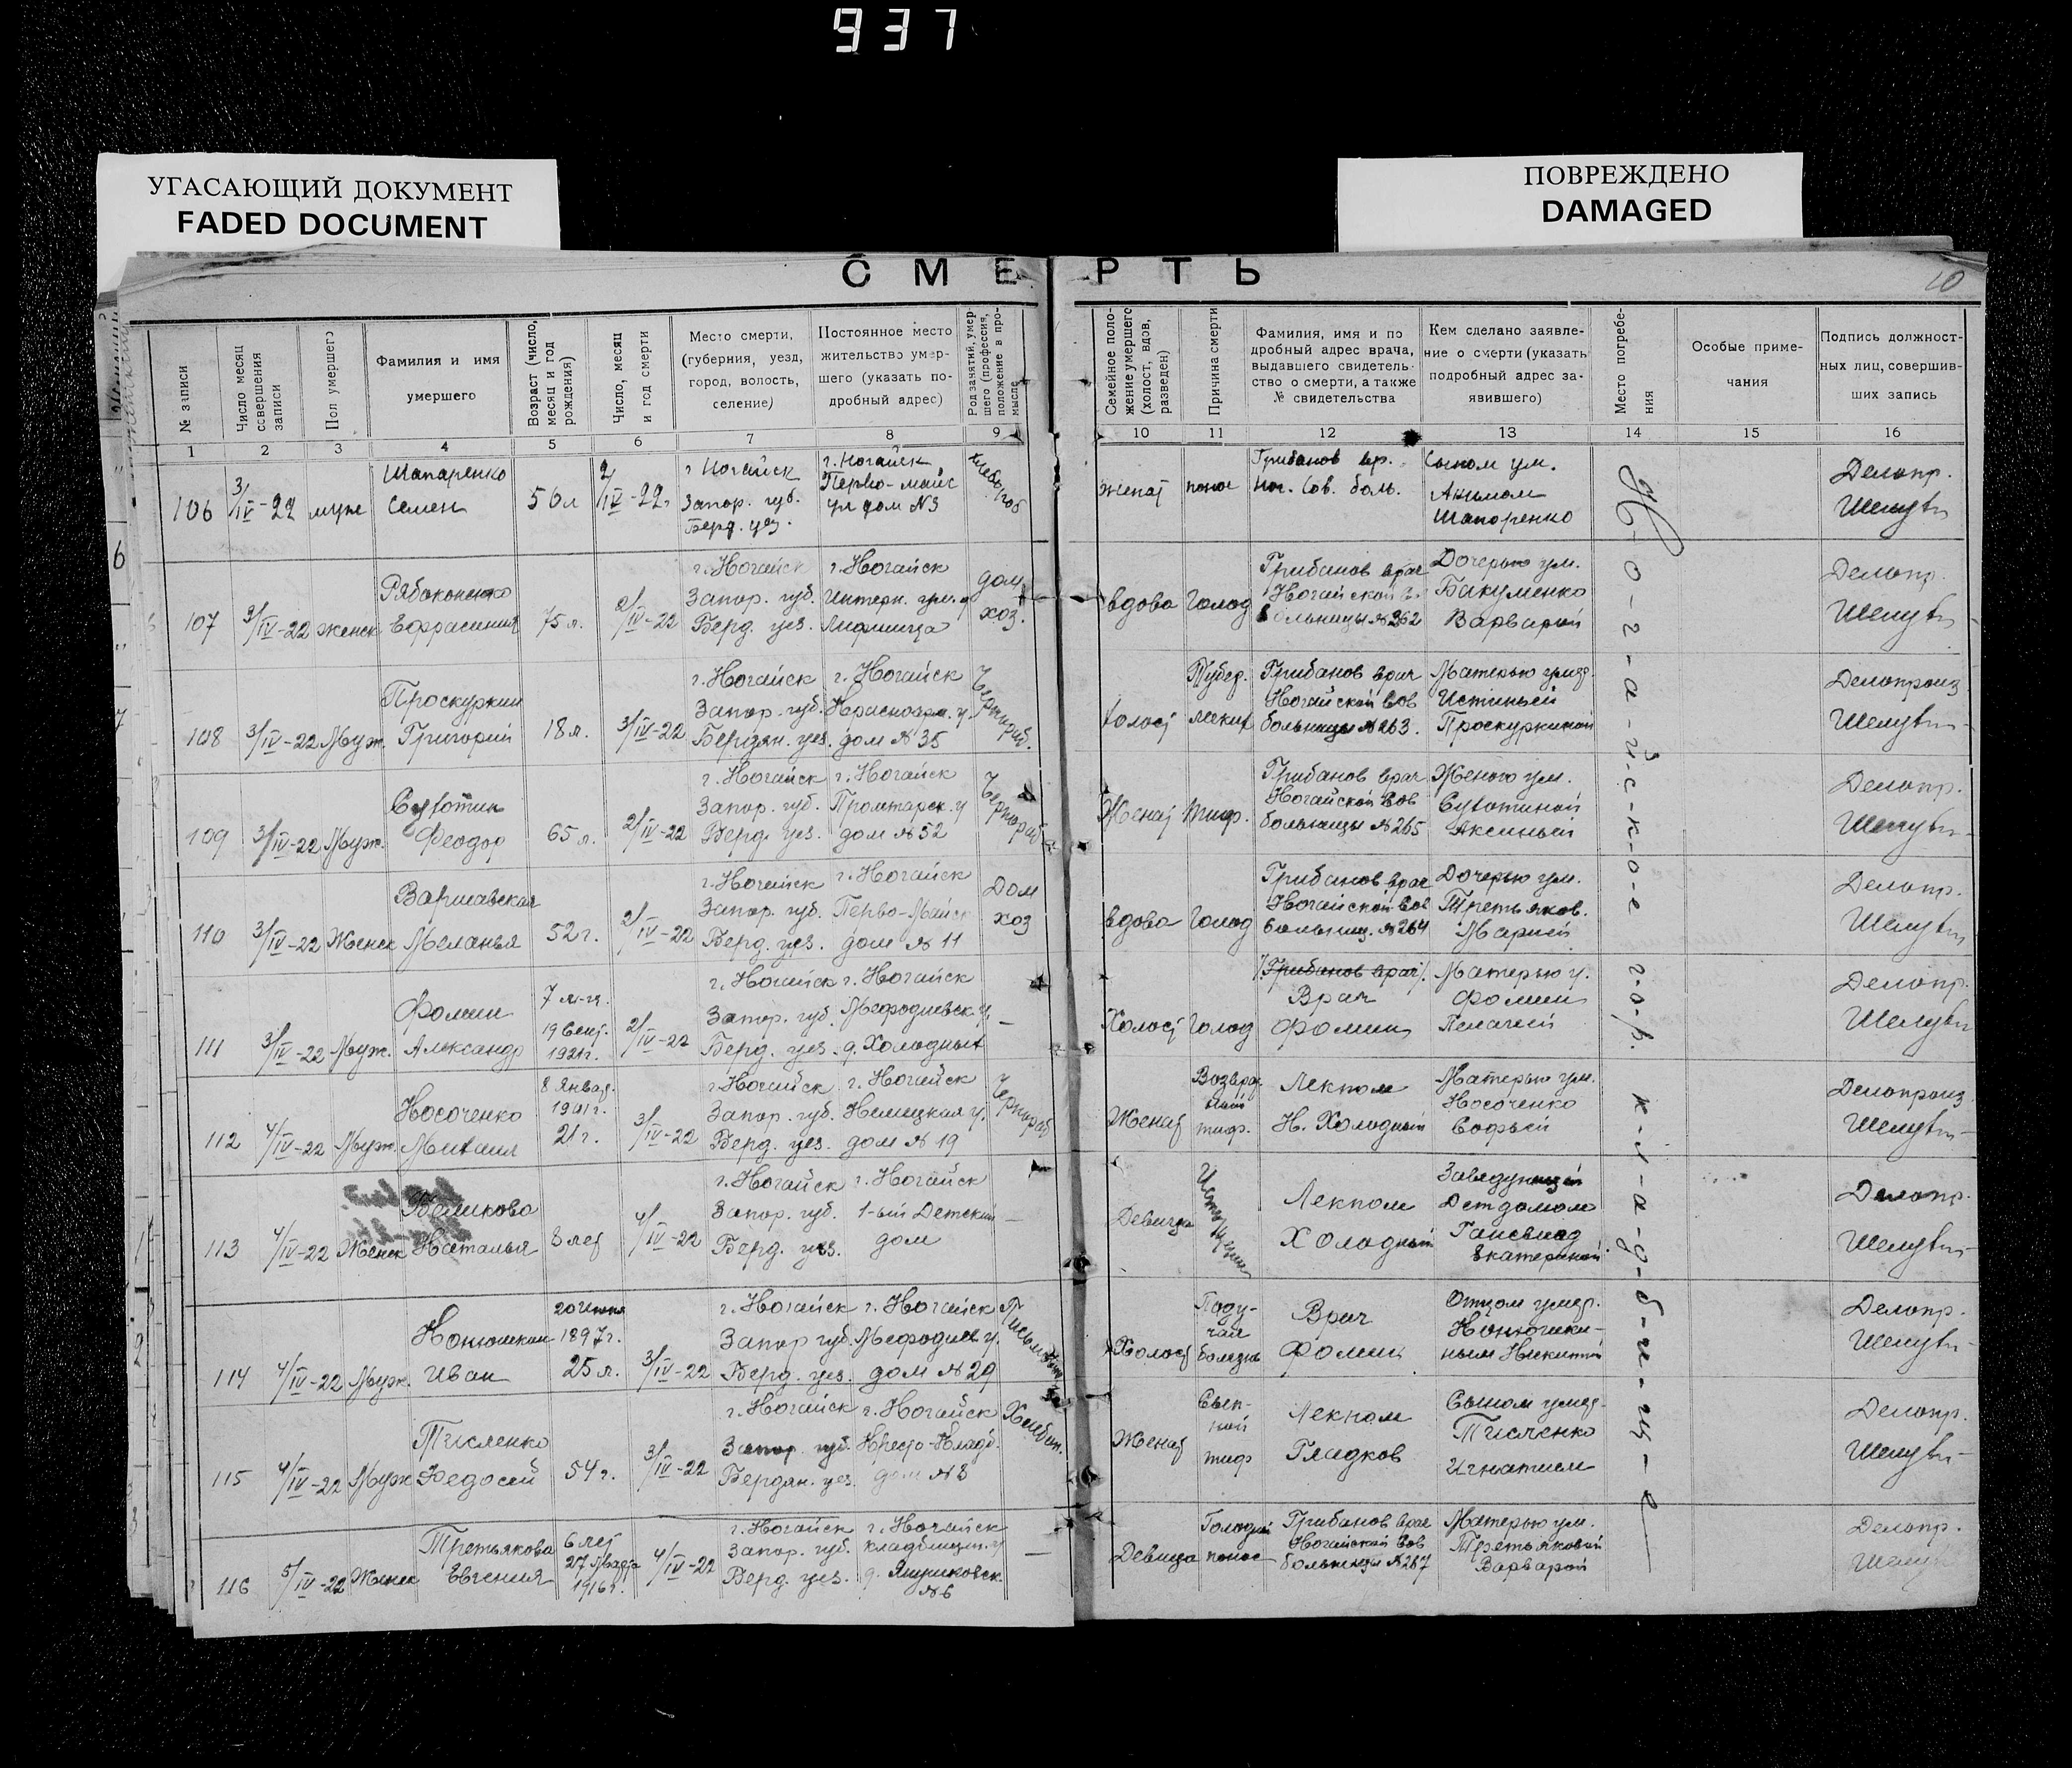 937
УГАСАЮЩИЙ ДОКУМЕНТ
FADED DOCUMENT
ПОВРЕЖДЕНО
DAMAGED
СМЕРТЬ
10
№ записи
Число месяц совершения записи
Пол умершего
Фамилия и имя умершего
Возраст (число, месяц и год рождения)
Число, месяц и год смерти
Место смерти, (губерния, уезд, город, волость, селение)
Постоянное место жительство умершего (указать подробный адрес)
Род занятий, умершего (профессия, положение в промысле
Семейное положение умершего (холост, вдов, разведен)
Причина смерти
Фамилия, имя и подробный адрес врача, выдавшего свидетельство о смерти, а также № свидетельства
Кем сделано заявление о смерти (указать подробный адрес заявившего)
Место погребения
Особые примечания
Подпись должностных лиц, совершивших запись
1 2 3 4 5 6 7 8 9 10 11 12 13 14 15 16
106 3/IV-22 муж Шапаренко Семен 56л 2/IV-22г г Ногайск Запор. губ. Берд. уез. г. Ногайск Перво-майс ул дом №3 хлебороб
Женат понос Грибанов вр. Ног. Сов. боль. Сыном ум. Акимом Шапоренко Делопр.
107 3/IV-22 Женск Рябоконенко Ефросиния 75 л. 2/IV-22 г. Ногайск Запор. губ. Берд. уез. г. Ногайск Интерн. ул. дом. хоз.
вдова Голод Грибанов врач Ногайской больницы №262 Дочерью ум. Бакуменко Варварой Делопр.
108 3/IV-22 Муж. Проскуркин Григорий 18 л. 3/IV-22 г. Ногайск Запор. губ. Бердян. уез. г. Ногайск Красноарм. у. дом № 35 Чернораб.
Холост Тубер. легких Грибанов врач Ногайской Сов больницы №263. Матерью умер. Устиньей Проскуркиной Делопроиз
109 3/IV-22 Муж. Суботин Феодор 65 л. 2/IV-22 г. Ногайск Запор. губ. Берд. уез. г. Ногайск Пролтарск. у дом № 52 Чернораб.
Женат тиф. Грибанов врач Ногайской Сов больницы №265 Женою ум. Суботиной Аксиньей Делопр.
110 3/IV-22 Женск Варшавская Меланья 52 г. 2/IV-22 г. Ногайск Запор. губ. Берд. уез. г. Ногайск Перво-Майск дом № 11 Дом хоз
вдова Голод Грибанов врач Ногайской Сов больниц. №264 Дочерью ум. Третьяков. Марией Делопр.
111 3/IV-22 Муж. Фомин Александр 7 м-ц. 19 Сент. 1921г. 2/IV-22 г. Ногайск Запор. губ. Берд. уез. г. Ногайск Мефодиевск у. д. Холодных —
Холост Голод Грибанов врач Врач Фомин Матерью у. Фомин Пелагией Делопр.
112 4/IV-22 Муж. Носоченко Михаил 8 Январ. 1901г. 21 г. 3/IV-22 г. Ногайск Запор. губ. Берд. уез. г. Ногайск Немецкая у. дом № 19 Чернораб
Женат Возврат ный тиф. Лекпом Н. Холодный Матерью ум. Носоченко Софьей Делопроиз
113 4/IV-22 Женск Великова Наталья 8 лет 4/IV-22 г. Ногайск Запор. губ. Берд. уез. г. Ногайск 1-ый Детский дом —
Девица Лекпом Холодный Заведующей Детдомом Екатериной Делопр.
114 4/IV-22 Муж. Конюшкин Иван 20 1897г. 25 л. 3/IV-22 г. Ногайск Запор губ. Берд. уез. г. Ногайск Мефодиев у. дом № 29
Холост Паду- чая болезнь Врач Фомин Отцом умер. Конюшки- ным Никитой Делопр.
115 4/IV-22 Муж Тисленко Федосей 54 г. 3/IV-22 г. Ногайск Запор. губ. Бердян. уез. г. Ногайск Кресто-Кладб. дом № 3
Женат Сып- ной тиф Лекпом Гладков Сыном умер. Тисленко Игнатием Делопр.
116 5/IV-22 Женск Третьякова Евгения 6 лет 27 Марта 1916 г. 4/IV-22 г. Ногайск Запор. губ. Берд. уез. г. Ногайск кладбищн. у №6 —
Девица Голодный понос Грибанов врач Ногайской Сов больницы №267 Матерью ум. Третьяковой Варварой Делопр.
Но-г-а-й-с-к-о-е г-о-р. к-л-а-д-б-и-щ-е